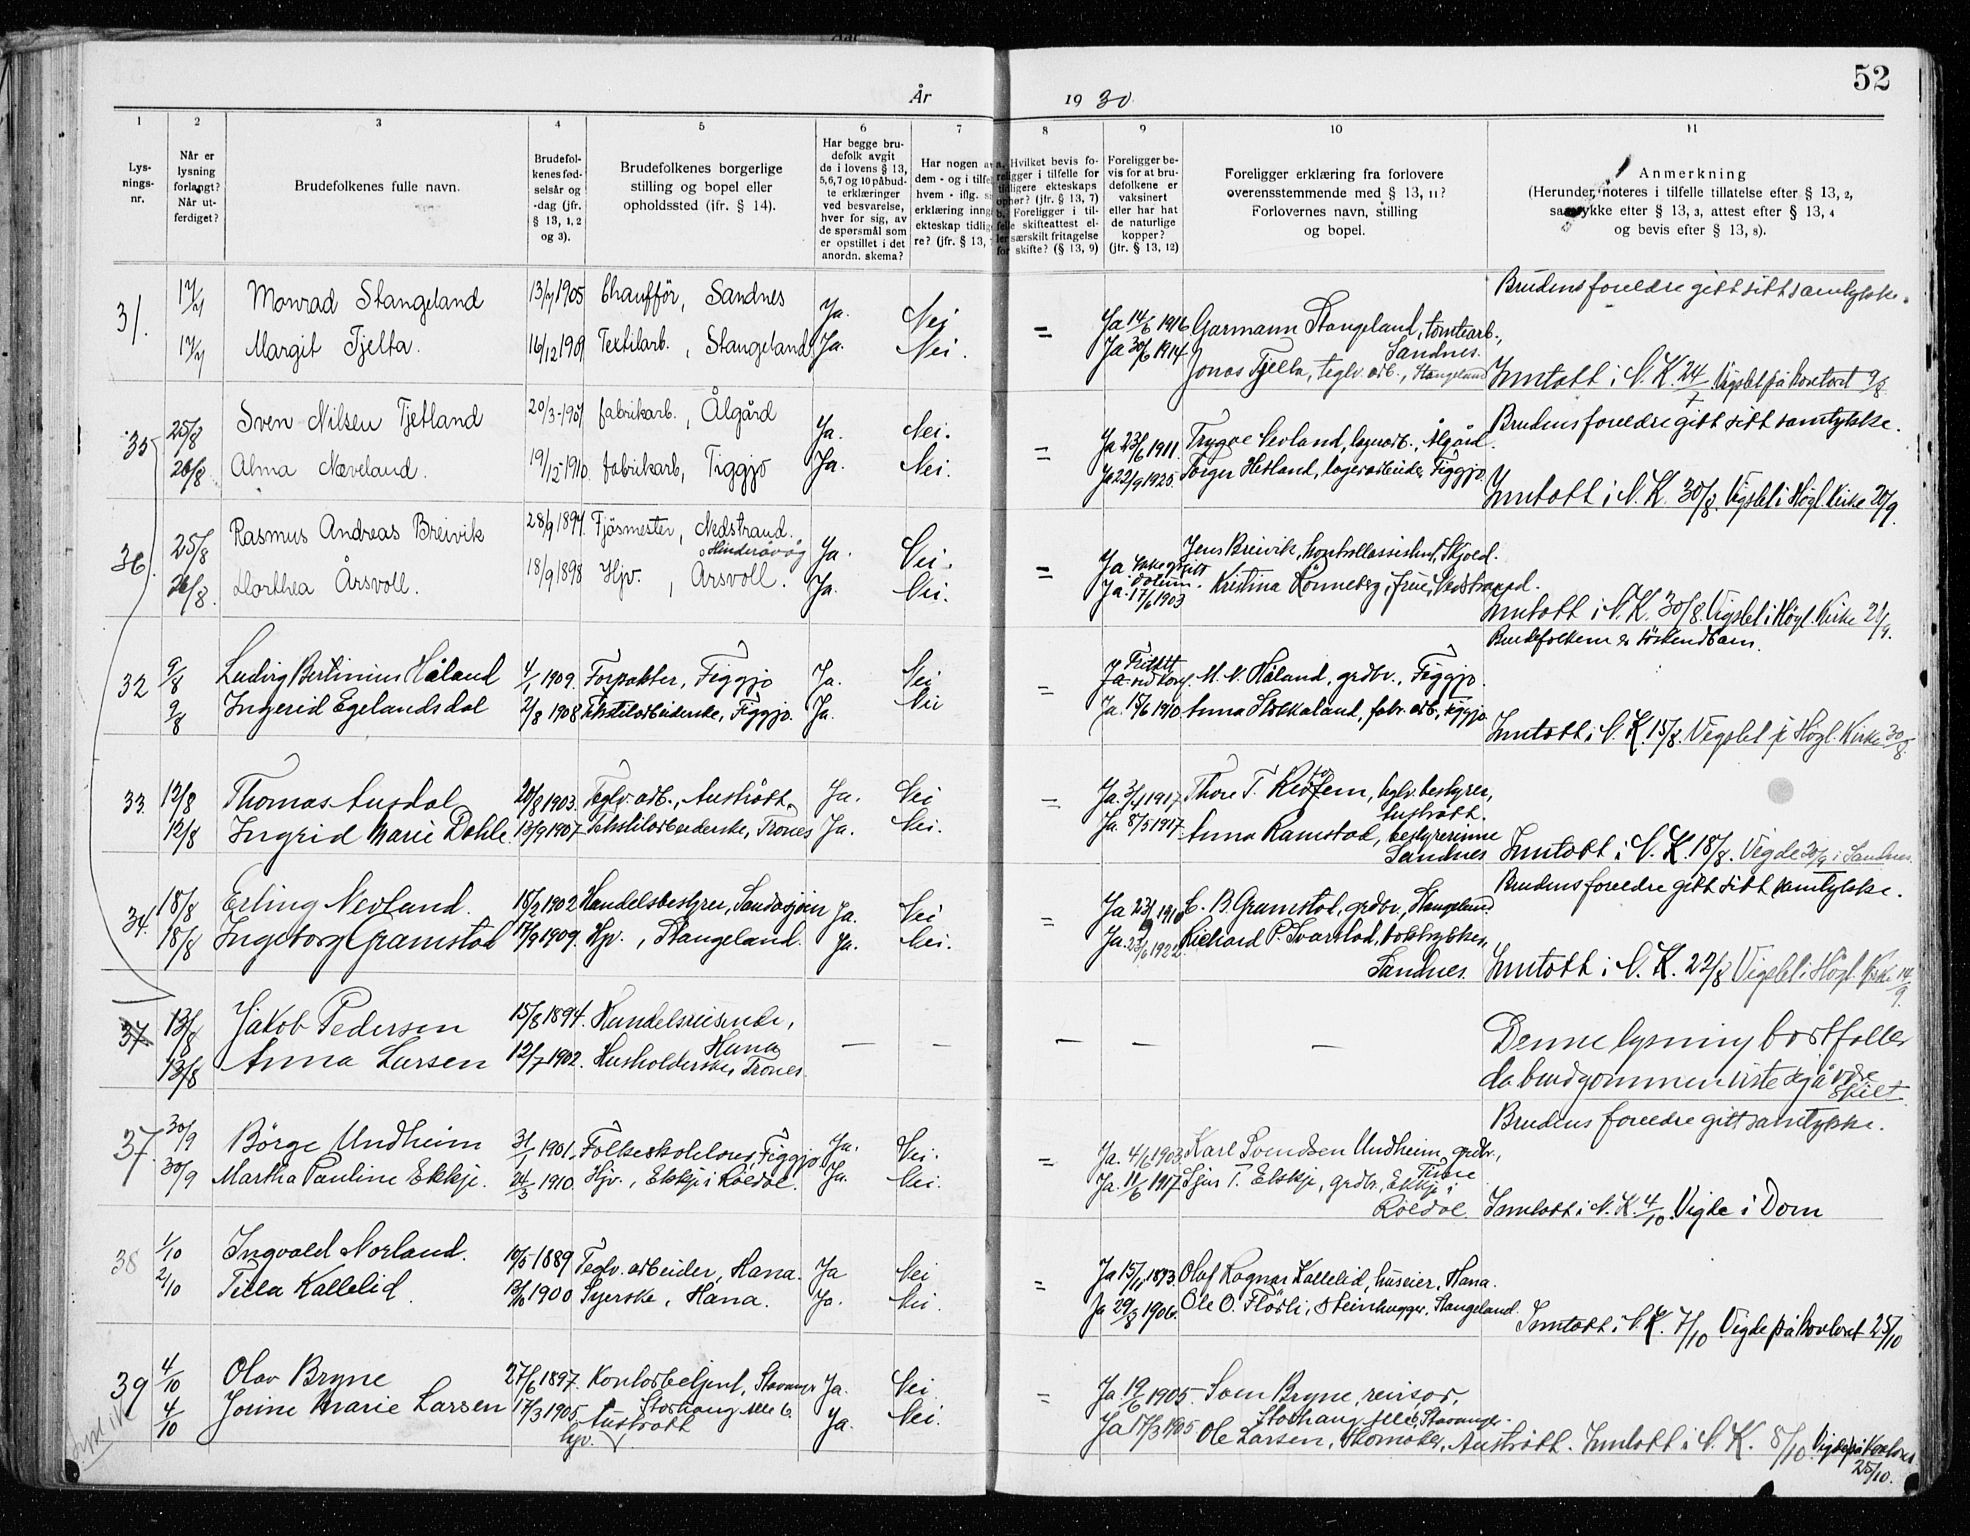 52
År 1930
1 2 3 4 5 6 7 8 9 10 11
Lysningsnr.
Når er lysning forlangt? Når utferdiget?
Brudefolkenes fulle navn.
Brudefolkenes fødselsår og -dag (jfr. § 13, 1, 2 og 3).
Brudefolkenes borgerlige stilling og bopel eller opholdssted (ifr. § 14).
Har begge brudefolk avgit de i lovens § 13, 5,6,7 og 10 påbudte erklæringer ved besvarelse, hver for sig, av de spørsmål som er opstillet i det anordn. skema?
Foreligger bevis for at brudefolkene er vaksinert eller har hat de naturlige kopper? (jfr. § 13, 12)
Foreligger erklæring fra forlovere overensstemmende med § 13, 11? Forlovernes navn, stilling og bopel.
Anmerkning (Herunder noteres i tilfelle tillatelse efter § 13, 2, samtykke efter § 13, 3, attest efter § 13, 4 og bevis efter § 13, 8).
Brudens foreldre gitt sitt samtykke.
31. Monrad Stangeland 13/7 1905 Chaufför, Sandnes Ja. Nei = Ja 14/6 1916 Garmann Stangeland, tomtearb., Sandnes.
Margit Tjelta. 16/12 1909 Textilarb., Stangeland Ja. Nei. Ja 30/6 1914 Jonas Tjelta, teglv. arb., Stangeland Inntatt i N. K. 24/7 Vigslet på kontoret 9/8
Brudens foreldre gitt sitt samtykke.
35 25/8 Sven Nilsen Tjetland 20/3-1901 fabrikarb., Ålgård Ja. Nei. = Ja 23/6 1911. Trygve Sevland, lagerarb., Ålgård.
26/8 Alma Næveland. 19/12 1910. fabrikarb, Figgjo Ja. Nei. Ja 22/9 1925. Torger Hetland, lagerarbeider, Figgjo. Inntatt i N. K. 30/8. Vigslet i Högl. Kirke 20/9.
36. 25/8 Rasmus Andreas Breivik 28/9 1894 Fjösmester, Nedstrand. Hinderåvåg Ja. Nei. = Ja Ikke opgitt datum. Jens Breivik, kontrollassistent, Skjold.
26/8. Dorthea Årsvoll. 18/9 1898 Hjv., Årsvoll. Ja. Nei. Ja. 17/6 1903 Kristina Rönneberg, frue, Nedstrand.
Inntatt i N. K. 30/8. Vigslet i Högl. Kirke 21/9.
Brudefolkene er söskendbarn.
32 9/8 Ludvig Bertinius Håland 4/1 1909. Forpakter, Figgjo Ja. Nei = M. N. Håland, grdbr., Figgjo.
9/8 Ingerid Egelandsdal 2/8 1908 Tekstilarbeiderske, Figgjo. Ja. Nei Ja. 15/6 1910 Anna Stokkaland, fabr. arb., Figgjo Inntatt i N. K. 15/8. Vigslet i Högl. Kirke 30/8.
33. 12/8 Thomas Ausdal 20/8 1903. Teglv. arb., Austrått. Ja. Nei = Ja. 3/4 1917. Thore T. teglv. bestyrer, Austrått.
12/8 Ingrid Marie Dahle. 13/9 1907. Tekstilarbeiderske, Trones Ja. Nei. Ja. 8/5 1917. Anna Ramstad, bestyrerinne Sandnes. Inntatt i N. K. 18/8. Vigde 30/9 i Sandnes.
Brudens foreldre gitt sitt samtykke.
34. 18/8 Erling Nevland. 18/2 1902 Handelsbestyrer, Sandasjöen Ja. Nei = Ja 23/9 1910 C. B. Gramstad, grdbr., Stangeland.
18/8 Ingeborg Gramstad 17/9 1909. Hjv., Stangeland. Ja. Nei. Ja. 23/6 1922. Richard P. Svartdad, boktrykker, Sandnes. Inntatt i N. K. 22/8 Vigslet i Högl. Kirke 14/9.
37 13/8 Jakob Pedersen 15/8 1894. Handelsreisende, Hana — — — — — Denne lysning bortfaller
13/8 Anna Larsen 12/7 1902. Husholderske, Trones. da brudgommen viste sig å være skilt.
Brudens foreldre gitt samtykke.
37. 30/9 Börge Undheim 31/1 1901. Folkeskolelærer, Figgjo Ja. Nei. = Ja. 4/6 1903 Karl Svendsen Undheim, grdbr., Time
30/9 Martha Pauline Ekkje. 24/3 1910. Hjv., Ekkje i Röldal. Ja. Nei. Ja. 11/6 1917. Sjur T. Ekkje, grdbr., Ekkje i Röldal Inntatt i N. K. 4/10. Vigde i Dom
38 1/10 Ingvald Norland. 10/5 1889 Teglv. arbeider, Hana. Ja Nei = Ja 15/11 1893. Olaf Ragnar Kallelid, huseier, Hana.
2/10 Tilla Kallelid 13/10 1900 Syerske, Hana. Ja. Nei. Ja 29/8 1906. Ole O. Flörli, Steinhugger, Stangeland. Inntatt i N. K. 7/10 Vigde på kontoret 25/10
39 4/10 Olav Bryne 27/6 1897. Kontorbetjent, Stavanger Storhaug alle 6. Ja. Nei = Ja. 19/6 1905. Som Bryne, revisor, Storhaug alle 6, Stavanger.
4/10 Jorine Marie Larsen 17/3 1905. Hjv. Austrått Ja. Nei. Ja 17/3 1905 Ole Larsen, Skomaker, Austrått. Inntatt i N. K. 8/10. Vigde på kontoret 25/10.